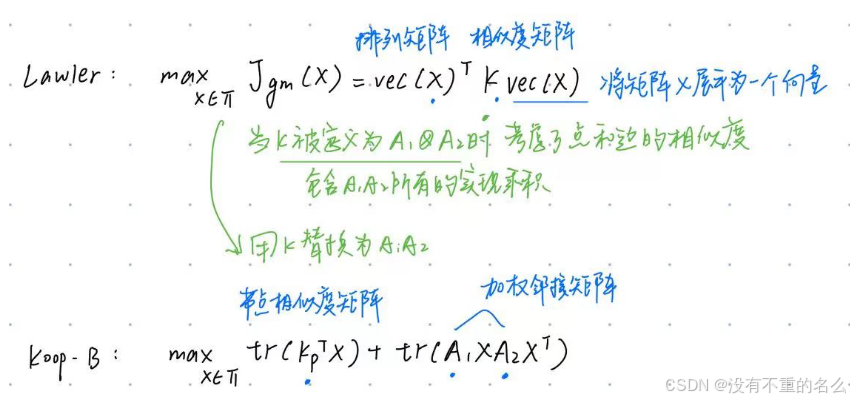 排列矩阵 相似度矩阵
Lawler: max X∈Π Jgm(X) = vec(X)ᵀ K vec(X) 将矩阵X展开为一个向量
当K被定义为A₁⊗A₂时 考虑了点和边的相似度
包含A₁A₂所有的实现乘积
用K替换为A₁A₂
节点相似度矩阵 加权邻接矩阵
Koop-B: max X∈Π tr(KpᵀX) + tr(A₁XA₂Xᵀ)
CSDN @没有不重的名么